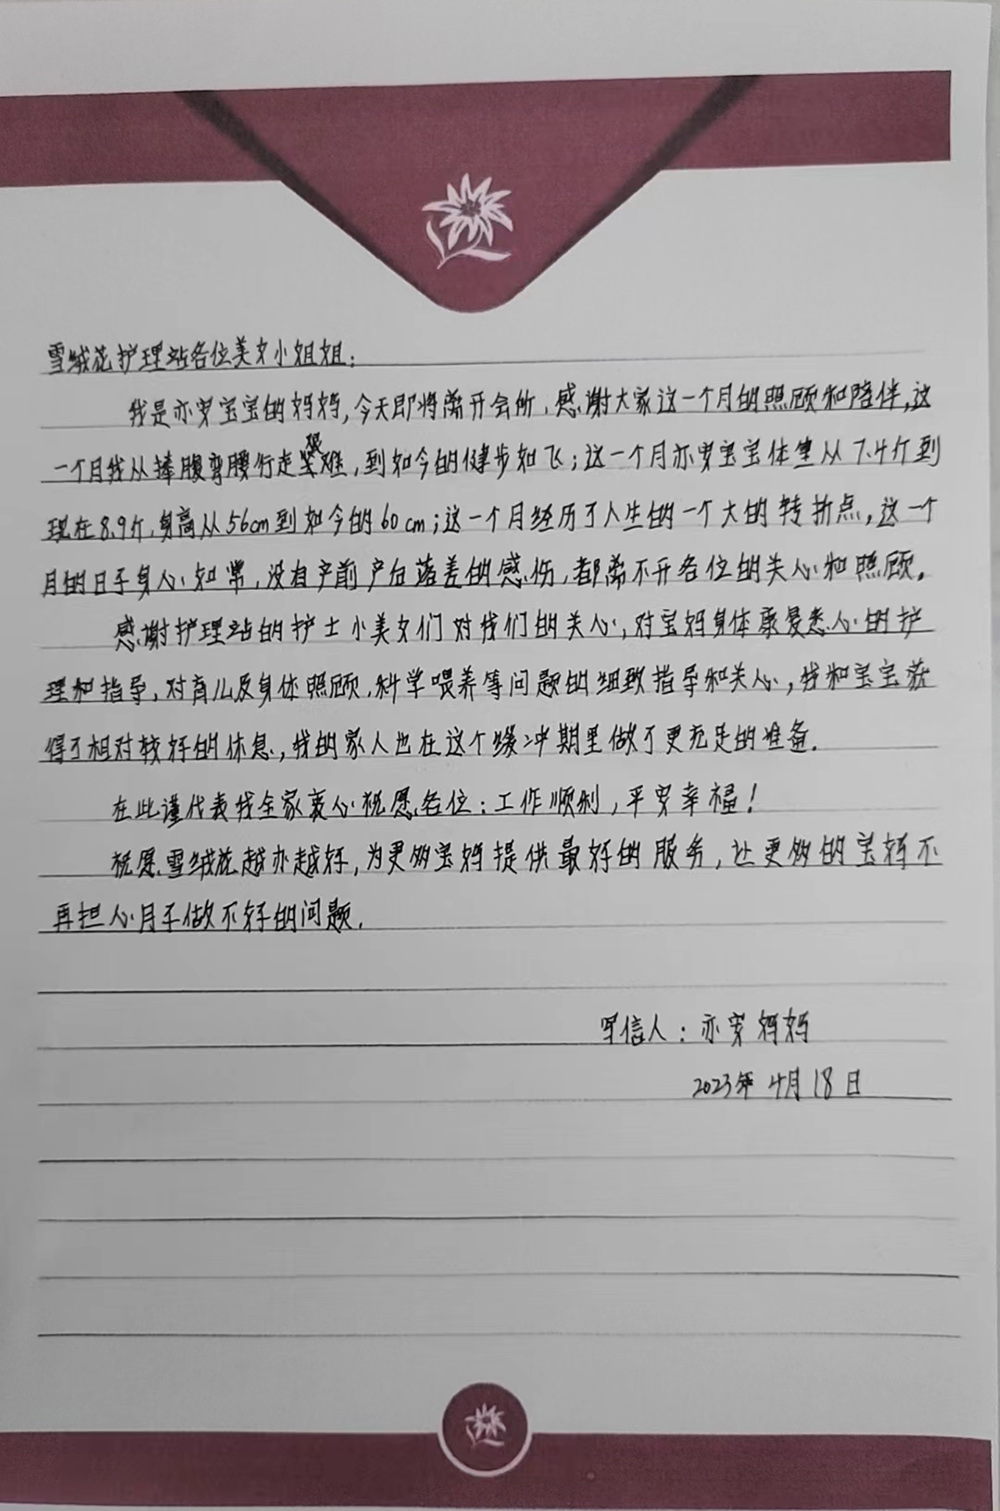 雪绒花护理站各位美女小姐姐：
我是亦安宝宝的妈妈，今天即将离开会所，感谢大家这一个月的照顾和陪伴，这
一个月我从捧腹弯腰行走艰难，到如今的健步如飞；这一个月亦安宝宝体重从7.4斤到
现在8.9斤，身高从56cm到如今的60cm；这一个月经历了人生的一个大的转折点，这一个
月的日子身心如常，没有产前产后落差的感伤，都离不开各位的关心和照顾。
感谢护理站的护士小美女们对我们的关心，对宝妈身体康复悉心的护
理和指导，对育儿及身体照顾、科学喂养等问题的细致指导和关心，我和宝宝获
得了相对较好的休息，我的家人也在这个缓冲期里做了更充足的准备。
在此谨代表我全家衷心祝愿各位：工作顺利，平安幸福！
祝愿雪绒花越办越好，为更多宝妈提供最好的服务，让更多的宝妈不
再担心月子做不好的问题。
写信人：亦安妈妈
2023年4月18日